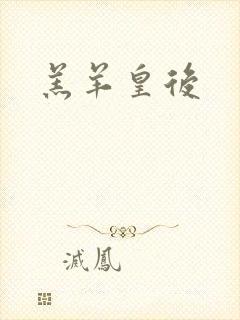 羔羊皇後
滅鳳